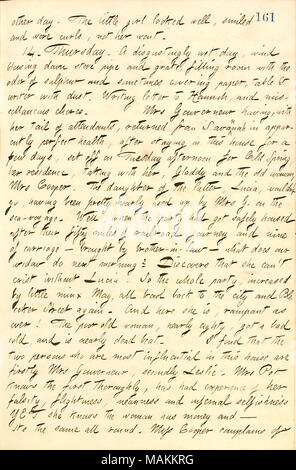 161
other day. The little girl looked well, smiled
and wore curls, not her wont.
14. Thursday. A disgustingly wet day, wind
blowing down stove pipe and grate, filling room with the
odor of sulphur and sometimes covering paper, table &
writer with dust. Writing letter to Hannah, and mis-
cellaneous chores. Mrs Gouverneur having, with
her tail of attendants, returned from Savanah in appar-
ently perfect health, after staying in this house for a
few days, set off on Tuesday afternoon for Cold Spring
her residence, taking with her, Gladdy and the old woman
Mrs Cooper. The daughter of the latter, Lucia, wouldn't
go, having been pretty nearly used up by Mrs G. on the
sea-voyage. Well when the party had got safely housed
after their fifty miles of railroad journey and nine
of carriage — brought by brother-in-law — what does our
widow do next morning? Discovers that she can't
exist without Lucia. So the whole party, increased
by little minx May, all back to the city and Ble-
ecker street again. And here she is, rampant as
ever! The poor old woman, nearly eighty, got a bad
cold, and is nearly dead beat. I find that the
two persons who are most influential in this house are
firstly Mrs Gouverneur, secondly Leslie. Mrs Pot
knows the first thoroughly, has had experience of her
falsity, flightiness, meanness and infernal selfishness
YET she knows the woman has money and —
its the same all round. Miss Cooper complains of
alamy
Image ID: MAKKRG
www.alamy.com